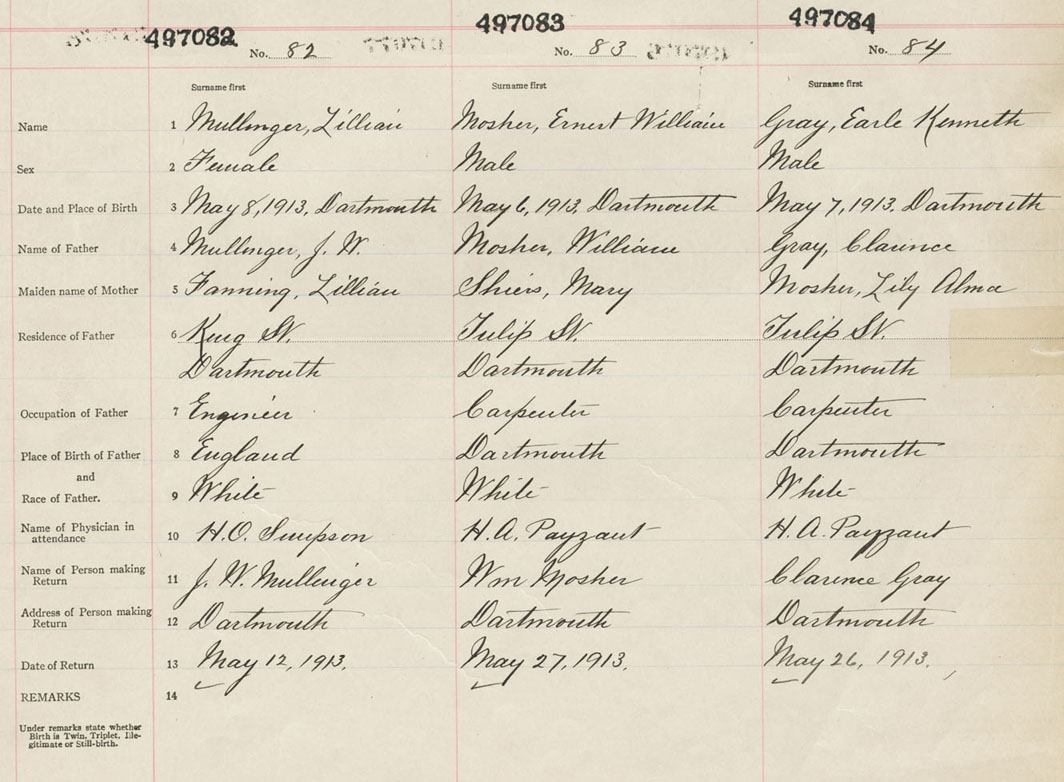 497082 497083 497084
No. 82 No. 83 No. 84
Surname first Surname first Surname first
Name 1 Mullinger, Lillian Mosher, Ernest William Gray, Earle Kenneth
Sex 2 Female Male Male
Date and Place of Birth 3 May 8, 1913, Dartmouth May 6, 1913, Dartmouth May 7, 1913, Dartmouth
Name of Father 4 Mullinger, J. W. Mosher, William Gray, Clarence
Maiden name of Mother 5 Fanning, Lillian Shiers, Mary Mosher, Lily Alma
Residence of Father 6 King St. Tulip St. Tulip St.
Dartmouth Dartmouth Dartmouth
Occupation of Father 7 Engineer Carpenter Carpenter
Place of Birth of Father 8 England Dartmouth Dartmouth
and
Race of Father. 9 White White White
Name of Physician in
attendance 10 H.O. Simpson H.A. Payzant H.A. Payzant
Name of Person making
Return 11 J. W. Mullinger Wm Mosher Clarence Gray
Address of Person making
Return 12 Dartmouth Dartmouth Dartmouth
Date of Return 13 May 12, 1913. May 27, 1913. May 26, 1913.
REMARKS 14
Under remarks state whether
Birth is Twin, Triplet, Ille-
gitimate or Still-birth.